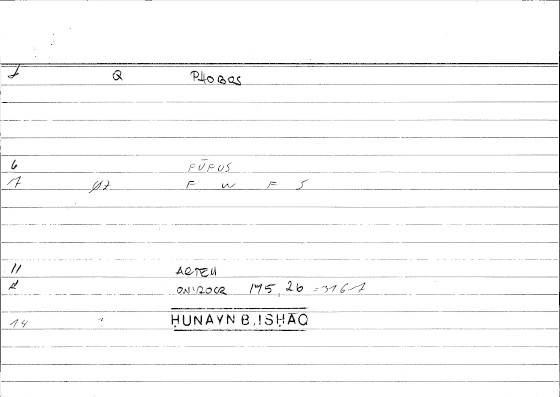 1 Q PHOBOS
6 FŪFUS
7 Ø7 F W F S
11 ARTEM
2 ONIROCR 175, 26 = 3167
14 " ḤUNAYN B. ISḤĀQ